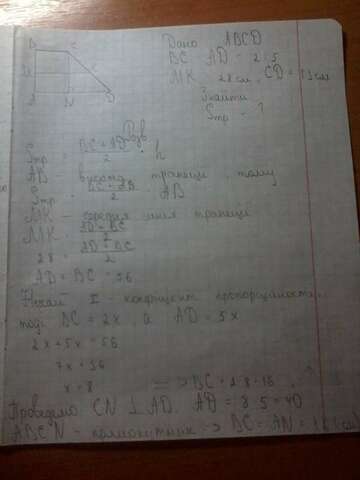 B C
Дано ABCD
BC : AD = 2 : 5
MK = 28 см, CD = 13 см
Знайти
Sтр - ?
Розв.
Sтр = BC + AD / 2 · h
AB - висота трапеції, тому
Sтр = BC + AD / 2 · AB
MK - середня лінія трапеції
MK = AD + BC / 2
28 = AD + BC / 2
AD + BC = 56
Нехай x - коефіцієнт пропорційності,
тоді BC = 2x, а AD = 5x
2x + 5x = 56
7x = 56
x = 8 => BC = 2·8 = 16
Проведемо CN ⊥ AD. AD = 8·5 = 40
ABCN - => BC = AN = 16 см